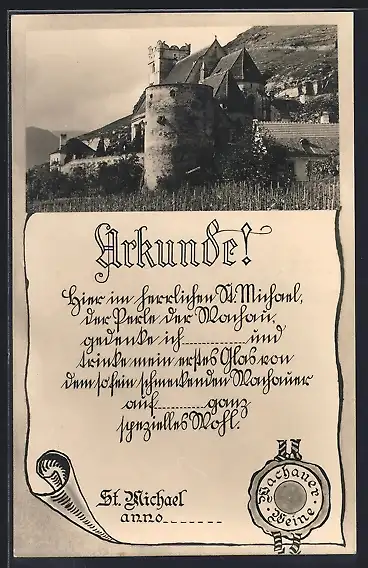 Urkunde!
Hier im herrlichen St. Michael,
der Perle der Wachau,
gedenke ich ......... und
trinke mein erstes Glas von
dem so fein schmeckenden Wachauer
auf ......... ganz
spezielles Wohl.
St. Michael
anno.......
Wachauer
Weine